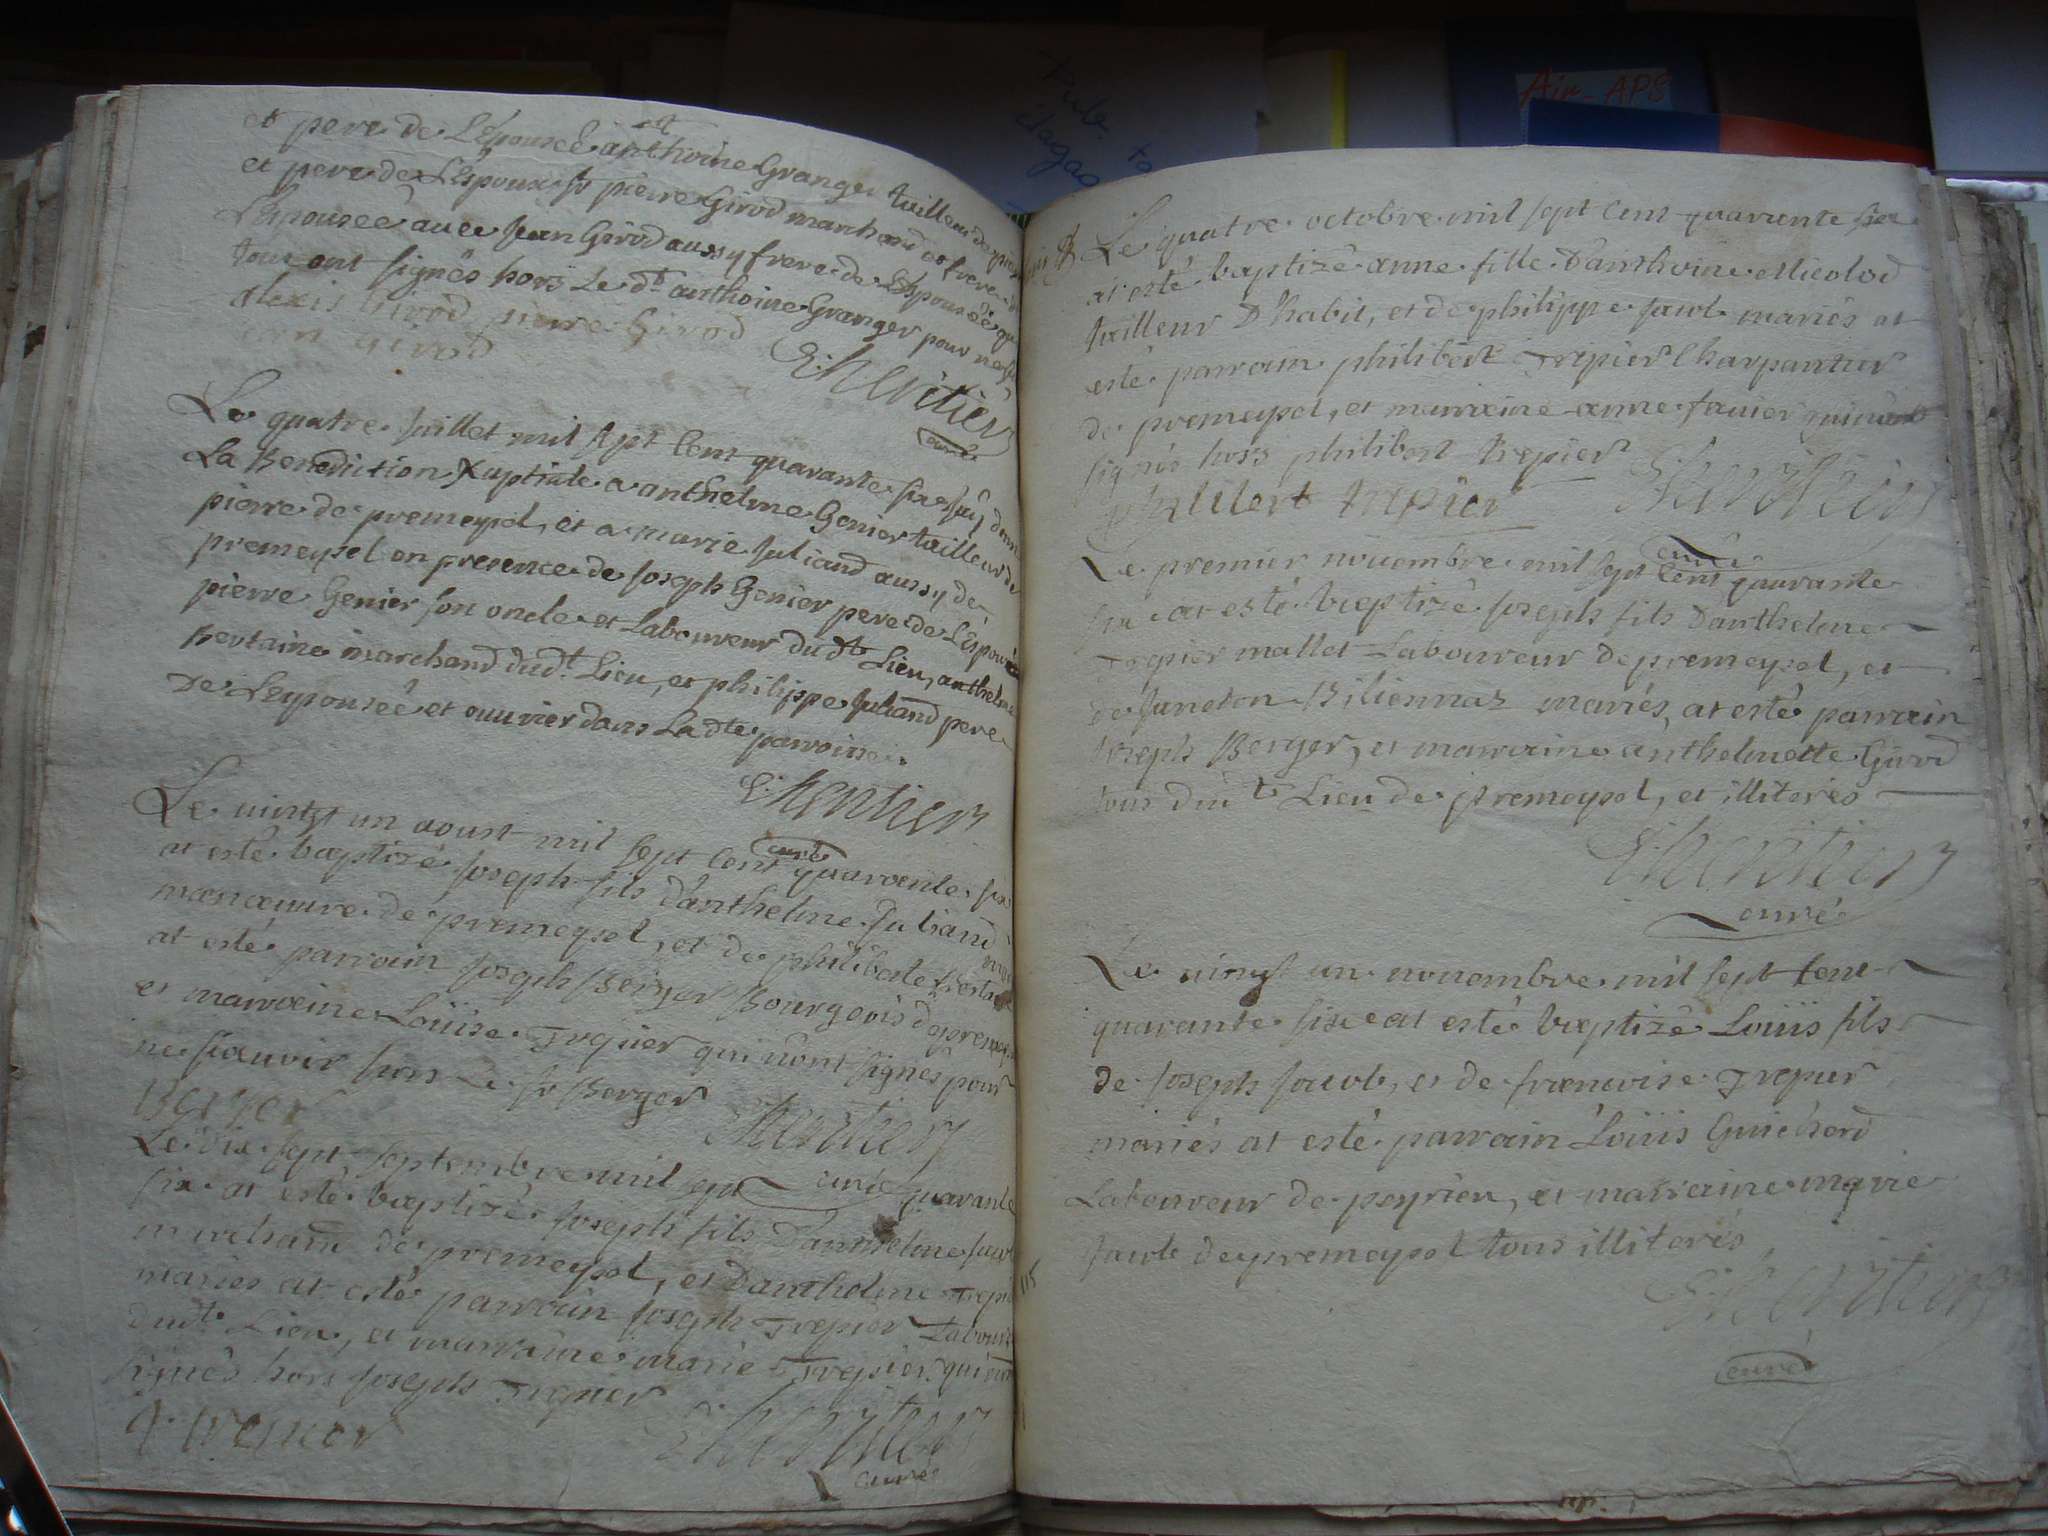 et pere de L'Epousée et anthoine Granger tailleur de pierre
et pere de L'Epoux Sr pierre Girod marchand et frere de
L'epousée avec Jean Girod aussy frere de L'Epousée qui
tous ont signés hors Le dt anthoine Granger pour
Alexis Girod pierre Girod
Girod
E: heritier
curé
Le quatre Juillet mil sept Cent quarante six J'ay donné
La Benediction Nuptiale a anthelme Genier tailleur de
pierre de premeysel, et a marie Juliand aussy de
premeysel en presence de Joseph Genier pere de L'Epoux
pierre Genier son oncle et Laboureur du dt Lieu, anthelme
Bertaine marchand dudt. Lieu, et philippe Juliand pere
De L'epousée et ouuvier dans La dte parroisse.
E: heritier
curé
Le vingt un aoust mil sept Cent quarante six
at esté baptizé Joseph fils d'anthelme Juliand
manoeuvre de premeysel, et de philiberte
at esté parrain Joseph Berger Bourgeois de premeysel
et marraine Loüise Trepier qui n'ont signés pour
ne sçauoir hors Le sr Berger
Berger
E: heritier
curé
Le dix sept septembre mil sept quarante
six at esté baptizé Joseph fils D'anthelme Jacob
marchand de premeysel, et D'anthelme Trepier
mariés at esté parrain Joseph Trepier Laboureur
dudt. Lieu, et marraine marie Trepier qui n'ont
signés hors Joseph Trepier
J: trepier
E: heritier
curé
Le quatre octobre mil sept Cent quarante six
at esté baptizé anne fille D'anthoine Micolod
tailleur D'habit, et de philippe Jacob mariés at
esté parrain philibert Trepier Charpantier
de premeysel, et marraine anne fauier
signés hors philibert trepier
philibert trepier
E: heritier
curé
Le premier nouembre mil sept Cent quarante
six at esté baptizé Joseph fils D'anthelme
Trepier mallet Laboureur de premeysel, et
de Janeton Biliennaz mariés, at esté parrain
Joseph Berger, et marraine anthelmette Girod
tous du dt Lieu de premeysel, et illiterés
E: heritier
curé
Le vingt un nouembre mil sept Cent
quarante six at esté baptizé Loüis fils
de Joseph Jacob, et de francoise Trepier
mariés at esté parrain Loüis Guichard
Laboureur de peyrieu, et marraine marie
Jacob de premeysel tous illiterés,
E: heritier
curé
115
Air-APS